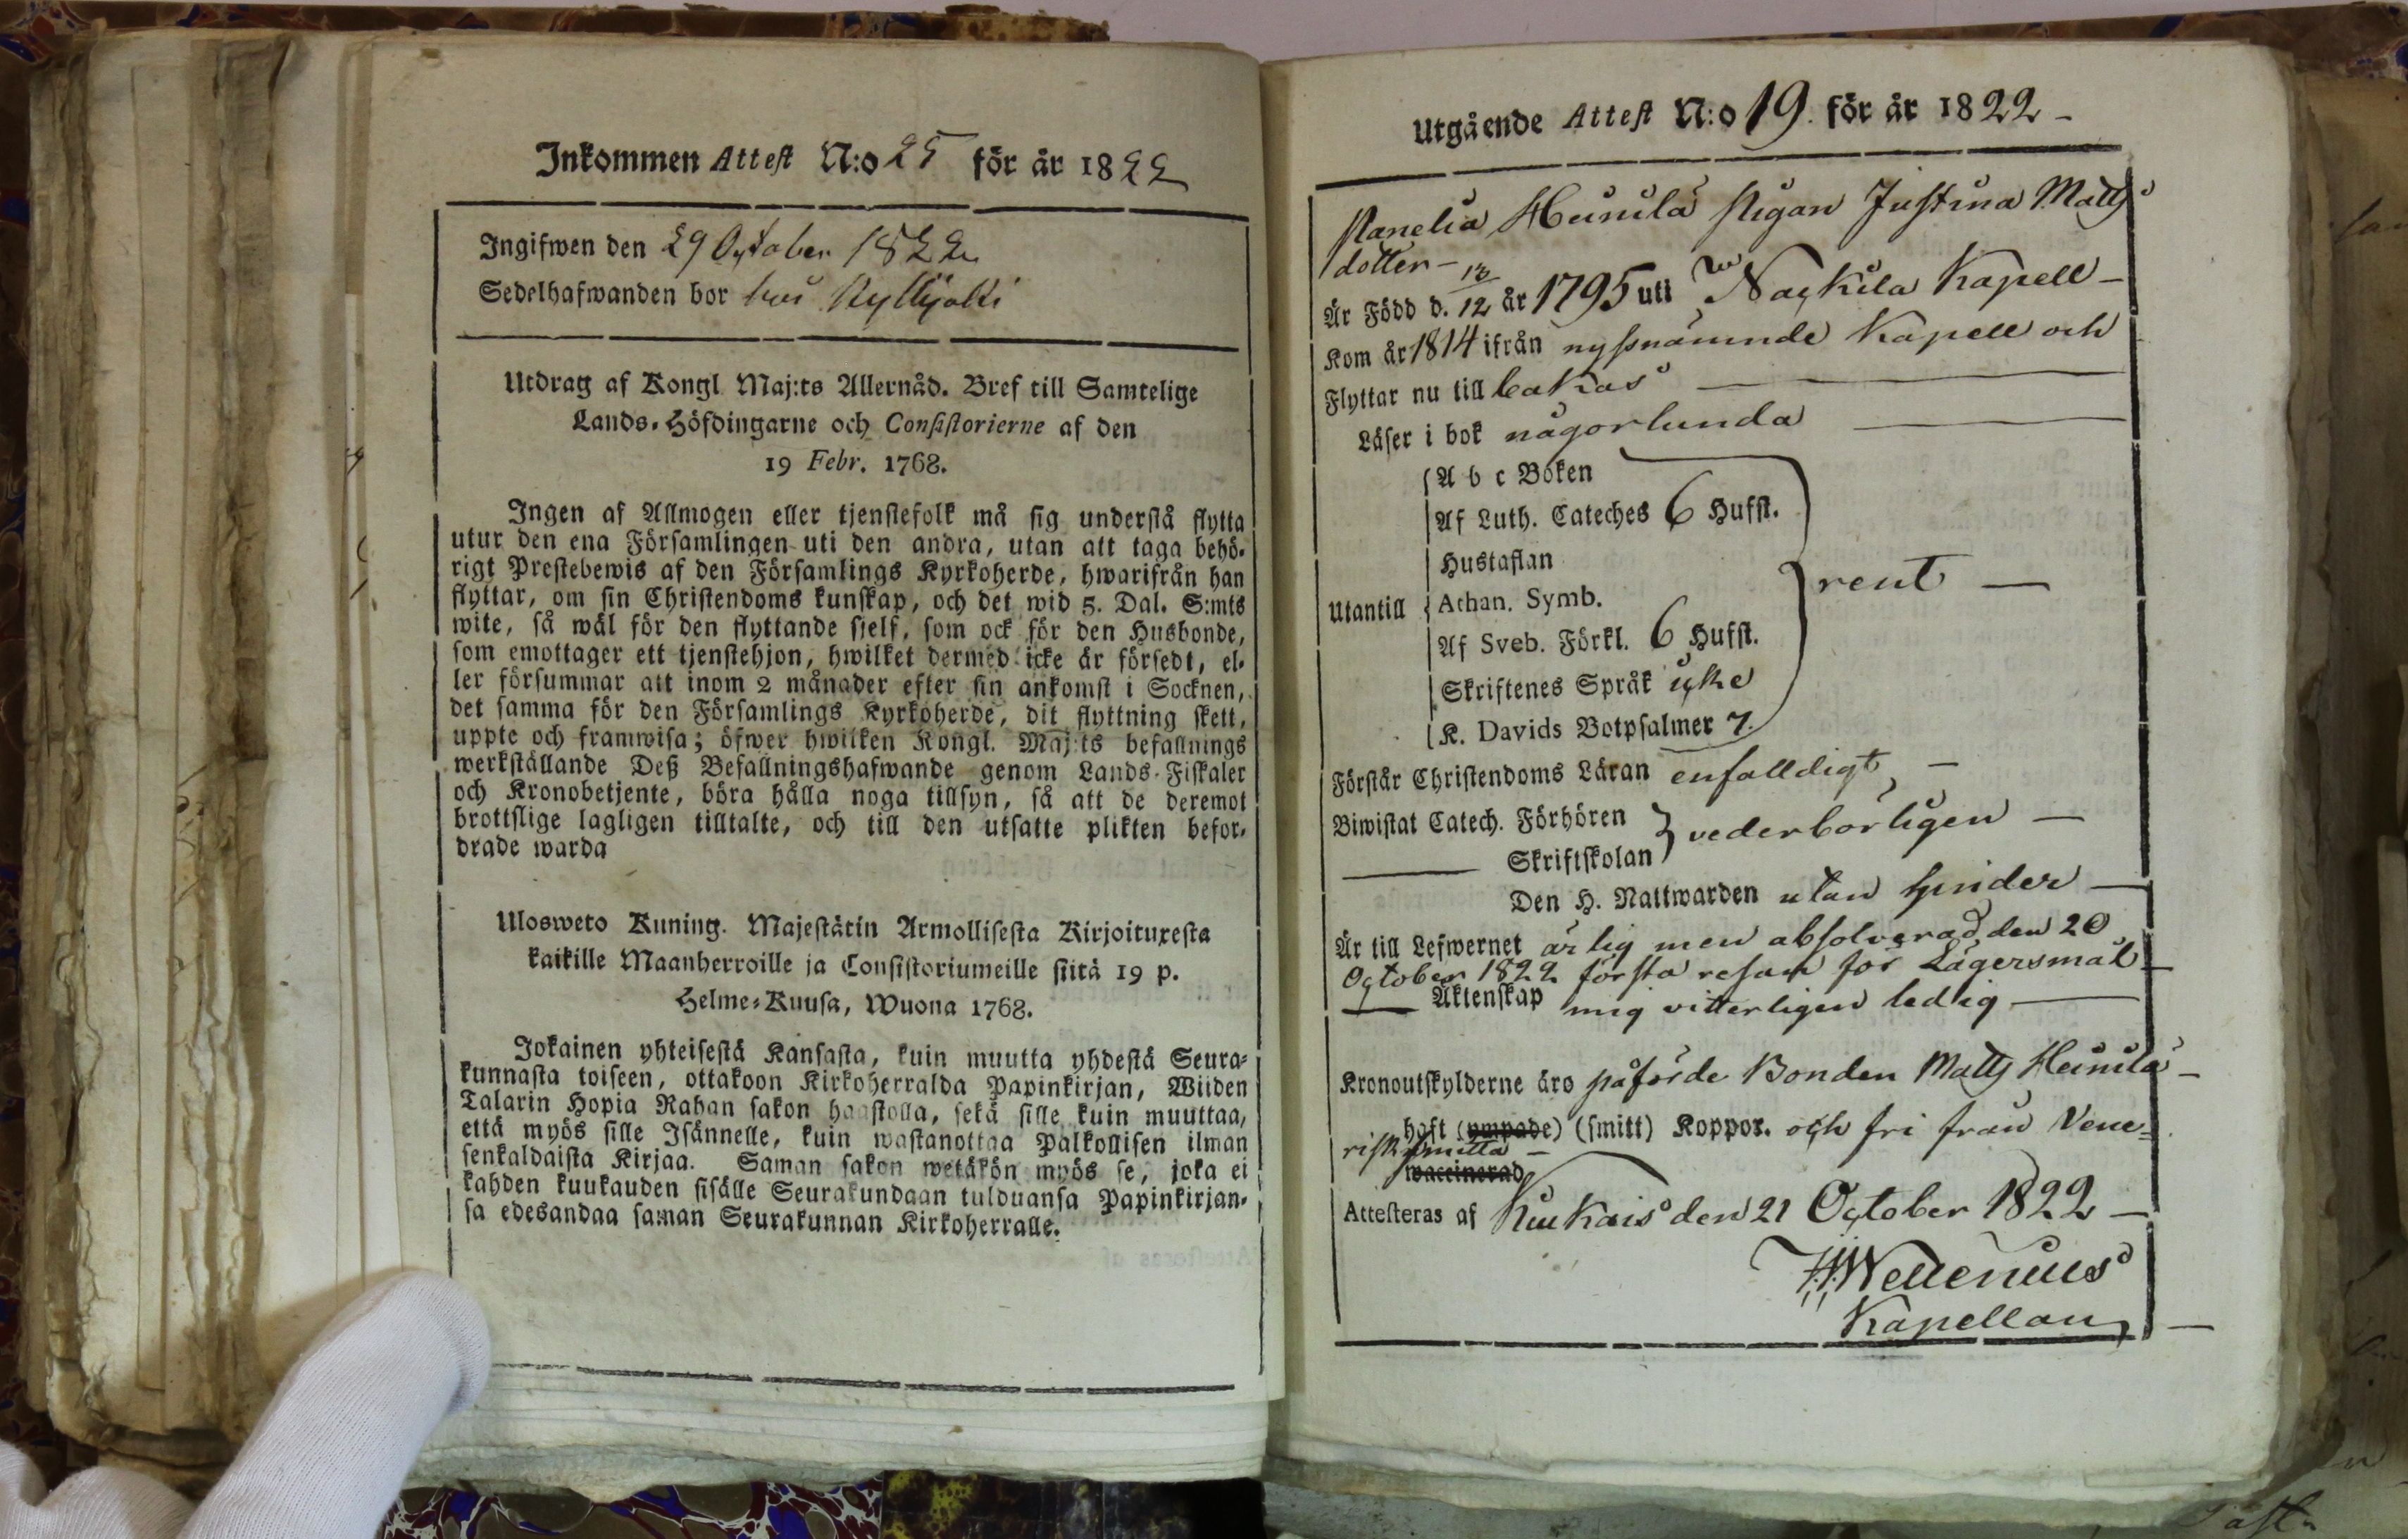 Inkommen Attest N:o 25 för år 1822
Ingifwen den 29 October 1822
Sedelhafwanden bor hos Kyllijoki
Utdrag af Kongl Maj:ts Allernåd. Bref till Samtelige
Lands-Höfdingarne och Consistorierne af den
19 Febr. 1768.
Ingen af Allmogen eller tjenstefolk må sig understå flytta
utur den ena Församlingen uti den andra, utan att taga behö-
rigt Prestebewis af den Församlings Kyrkoherde, hwarifrån han
flyttar, om sin Christendoms kunskap, och det wid 5. Dal. S:mts
wite, så wäl för den flyttande sjelf, som ock för den Husbonde,
som emottager ett tjenstehjon, hwilket dermed icke är försedt, el-
ler försummar att inom 2 månader efter sin ankomst i Socknen,
det samma för den Församlings Kyrkoherde, dit flyttning skett,
uppte och framwisa; öfwer hwilken Kongl. Maj:ts befallnings
werkställande Deß Befallningshafwande genom Lands-Fiskaler
och Kronobetjente, böra hålla noga tillsyn, så att de deremot
brottslige lagligen tilltalte, och till den utsatte plikten befor-
drade warda
Ulosweto Kuning. Majestätin Armollisesta Kirjoituxesta
kaikille Maanherroille ja Consistoriumeille siitä 19 p.
Helme-Kuusa, Wuona 1768.
Jokainen yhteisestä Kansasta, kuin muutta yhdestä Seura-
kunnasta toiseen, ottakoon Kirkoherralda Papinkirjan, Wiiden
Talarin Hopia Rahan sakon haastolla, sekä sille kuin muuttaa,
että myös sille Isännelle, kuin wastanottaa Palkollisen ilman
senkaldaista Kirjaa. Saman sakon wetäkön myös se, joka ei
kahden kuukauden sisälle Seurakundaan tulduansa Papinkirjan-
sa edesandaa saman Seurakunnan Kirkoherralle.
Utgående Attest N:o 19. för år 1822 -
Panelia Heinila Pigan Justina Matts
dotter -
Är Född d. 13/12 år 1795 uti Nackila Kapell -
Kom år 1814 ifrån nyssnämnde Kapell och
Flyttar nu till
Läser i bok någorlunda
A b c Boken
Af Luth. Cateches 6 Hufst.
Hustaflan
Utantill Athan. Symb. rent -
Af Sveb. Förkl. 6 Hufst.
Skriftenes Språk icke
K. Davids Botpsalmer 7.
Förstår Christendoms Läran enfalldigt, -
Biwistat Catech. Förhören vederbörligen -
Skriftskolan
Den H. Nattwarden utan hinder -
Är till Lefwernet ärlig men absolverad den 20
October 1822 första resan för Lägersmål -
Äktenskap mig vitterligen ledig -
Kronoutskylderne äro påförde Bonden Matts Heinilä -
haft (ympade) (smitt) Koppor. och fri från Vene-
risk smitta -
waccinerad
Attesteras af Kiukais den 21 October 1822 -
Wellenius
Kapellan,